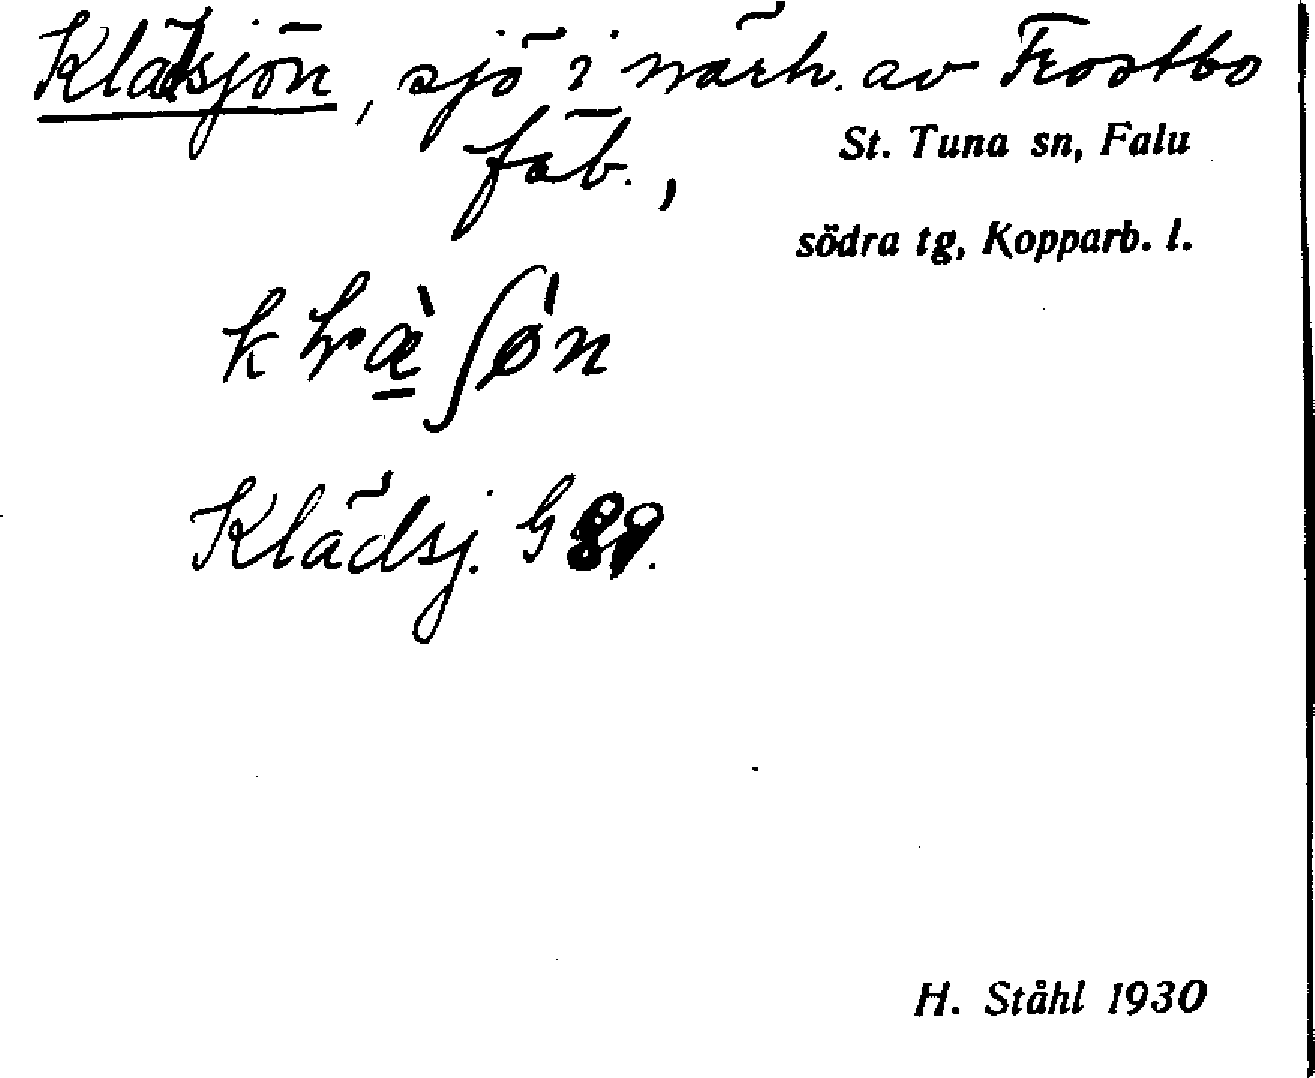 Klädsjön, sjö i närh. av Frostbo
fäb.,
St. Tuna sn, Falu
södra tg, Kopparb. l.
Klädsj. G 89.
H. Ståhl 1930